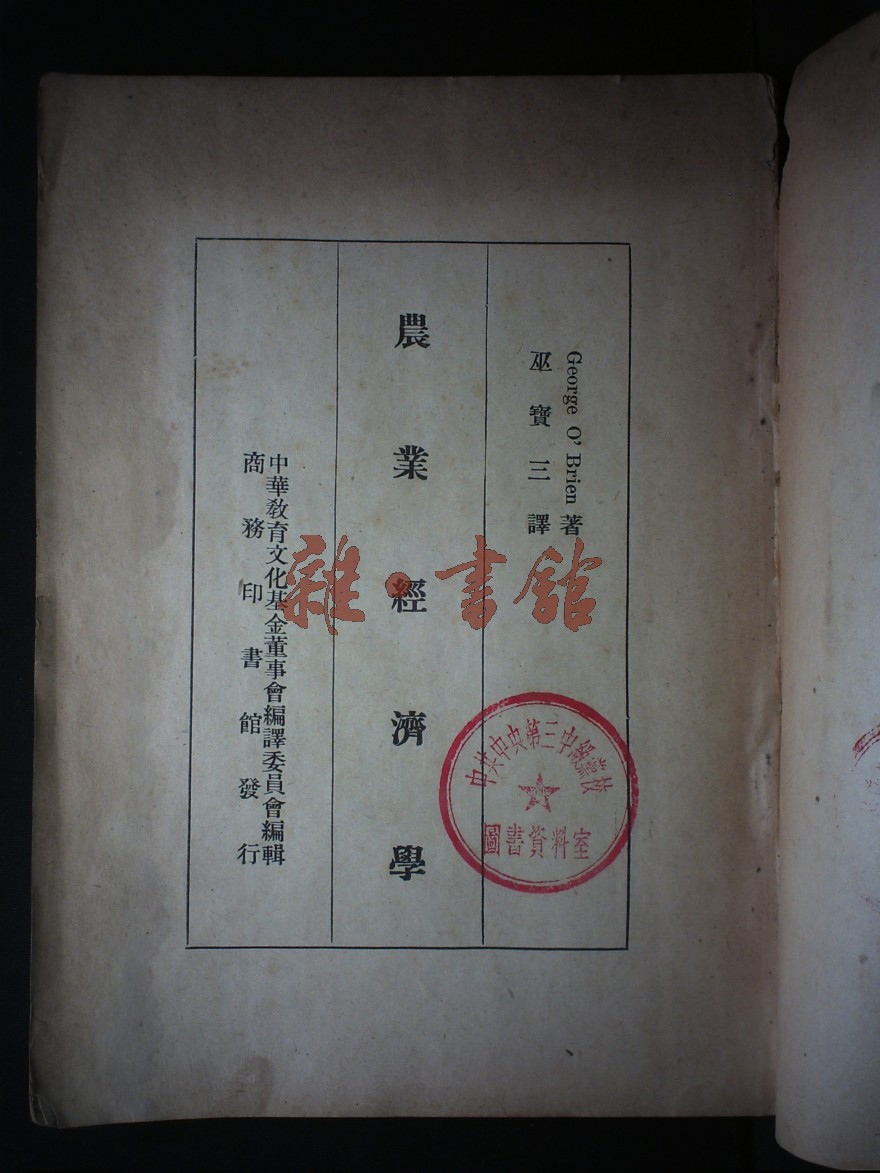 George O' Brien 著
巫寶三譯
農業經濟學
中華教育文化基金董事會編譯委員會編輯
商務印書館發行
雜·書館
中共中央第三中級黨校
圖書資料室